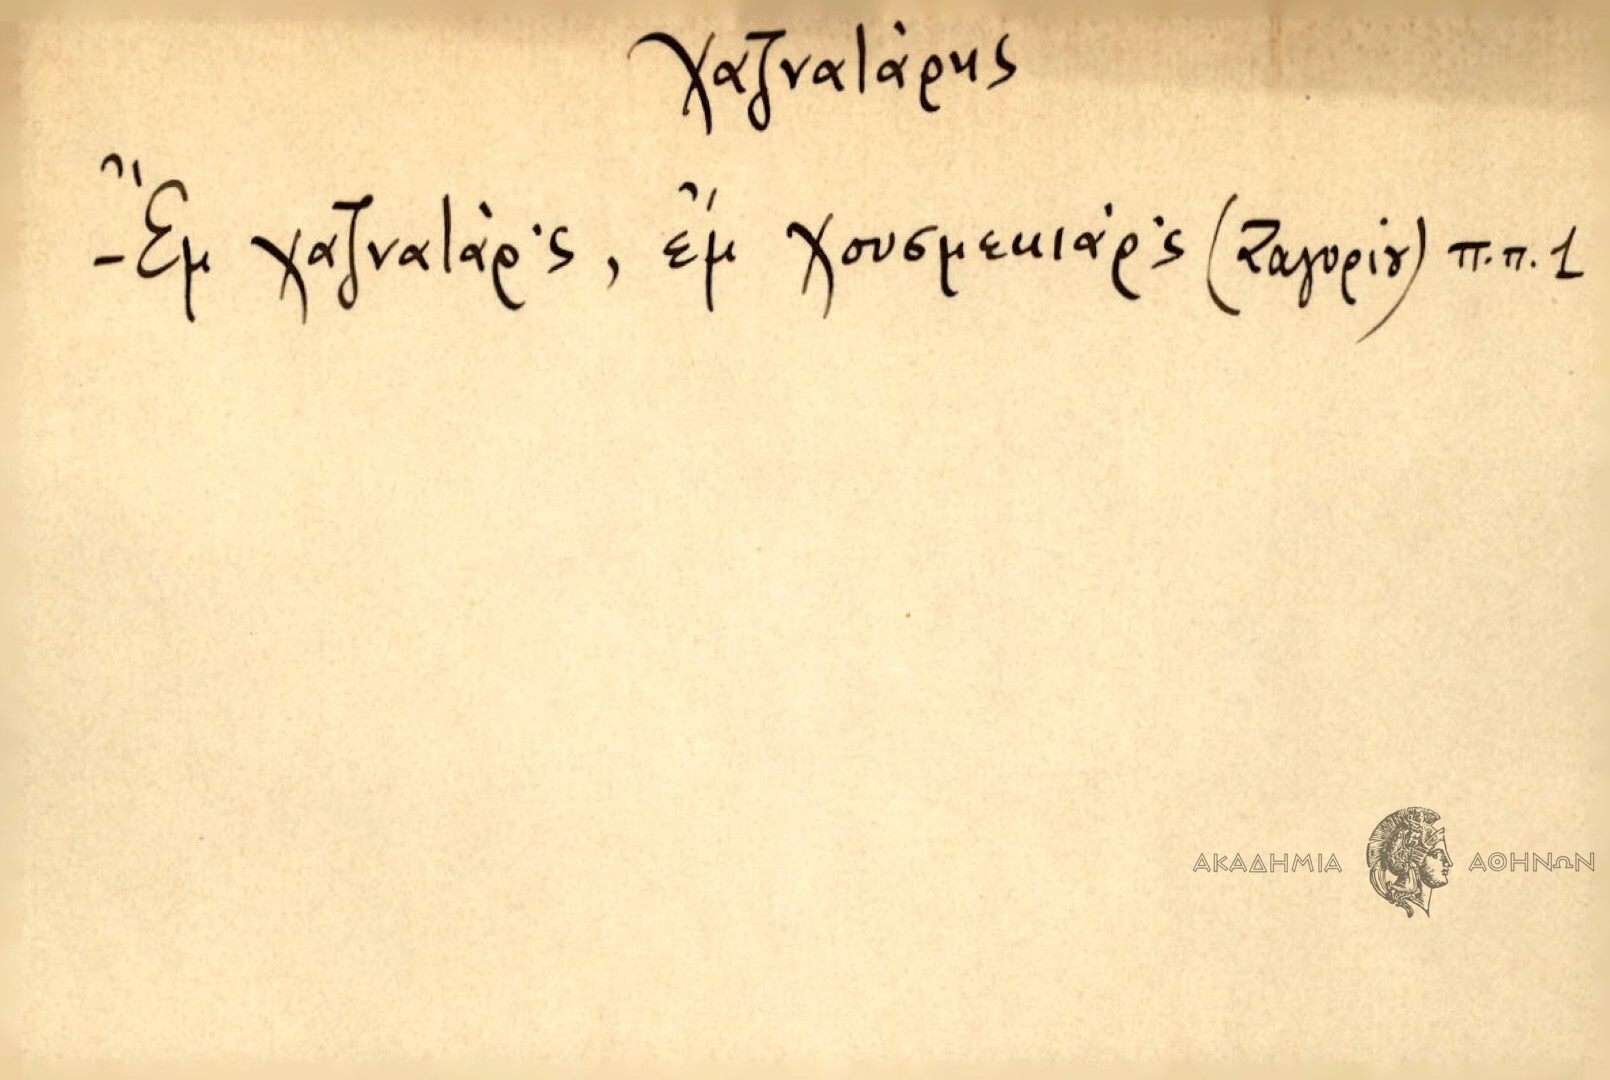 Χαζναtάρης
-Ἒμ χαζναtάρ'ς, ἒμ χουσμεκιάρ'ς (Ζαγορίȣ) π.π. 1
ΑΚΑΔΗΜΙΑ ΑΘΗΝΩΝ